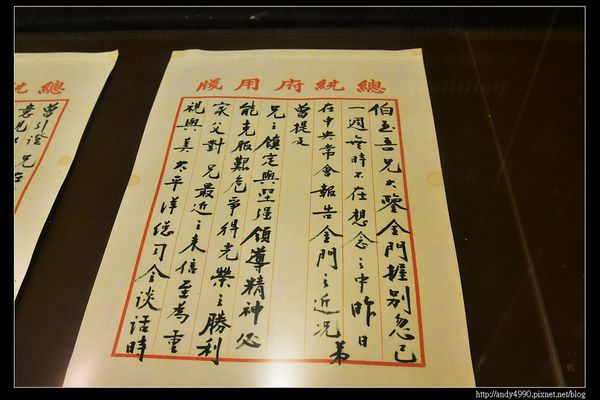 總統府用牋
伯玉吾兄大鑒金門握別忽已
一週無時不在想念之中昨日
在中央常會報告金門之近况弟
曾提及
兄之鎮定與堅强領導精神必
能克服艱危爭得光榮之勝利
家父對兄最近之來信至為重
視與美太平洋總司令談話時
總統
曾引證兄
意見
http://andy4990.pixnet.net/blog